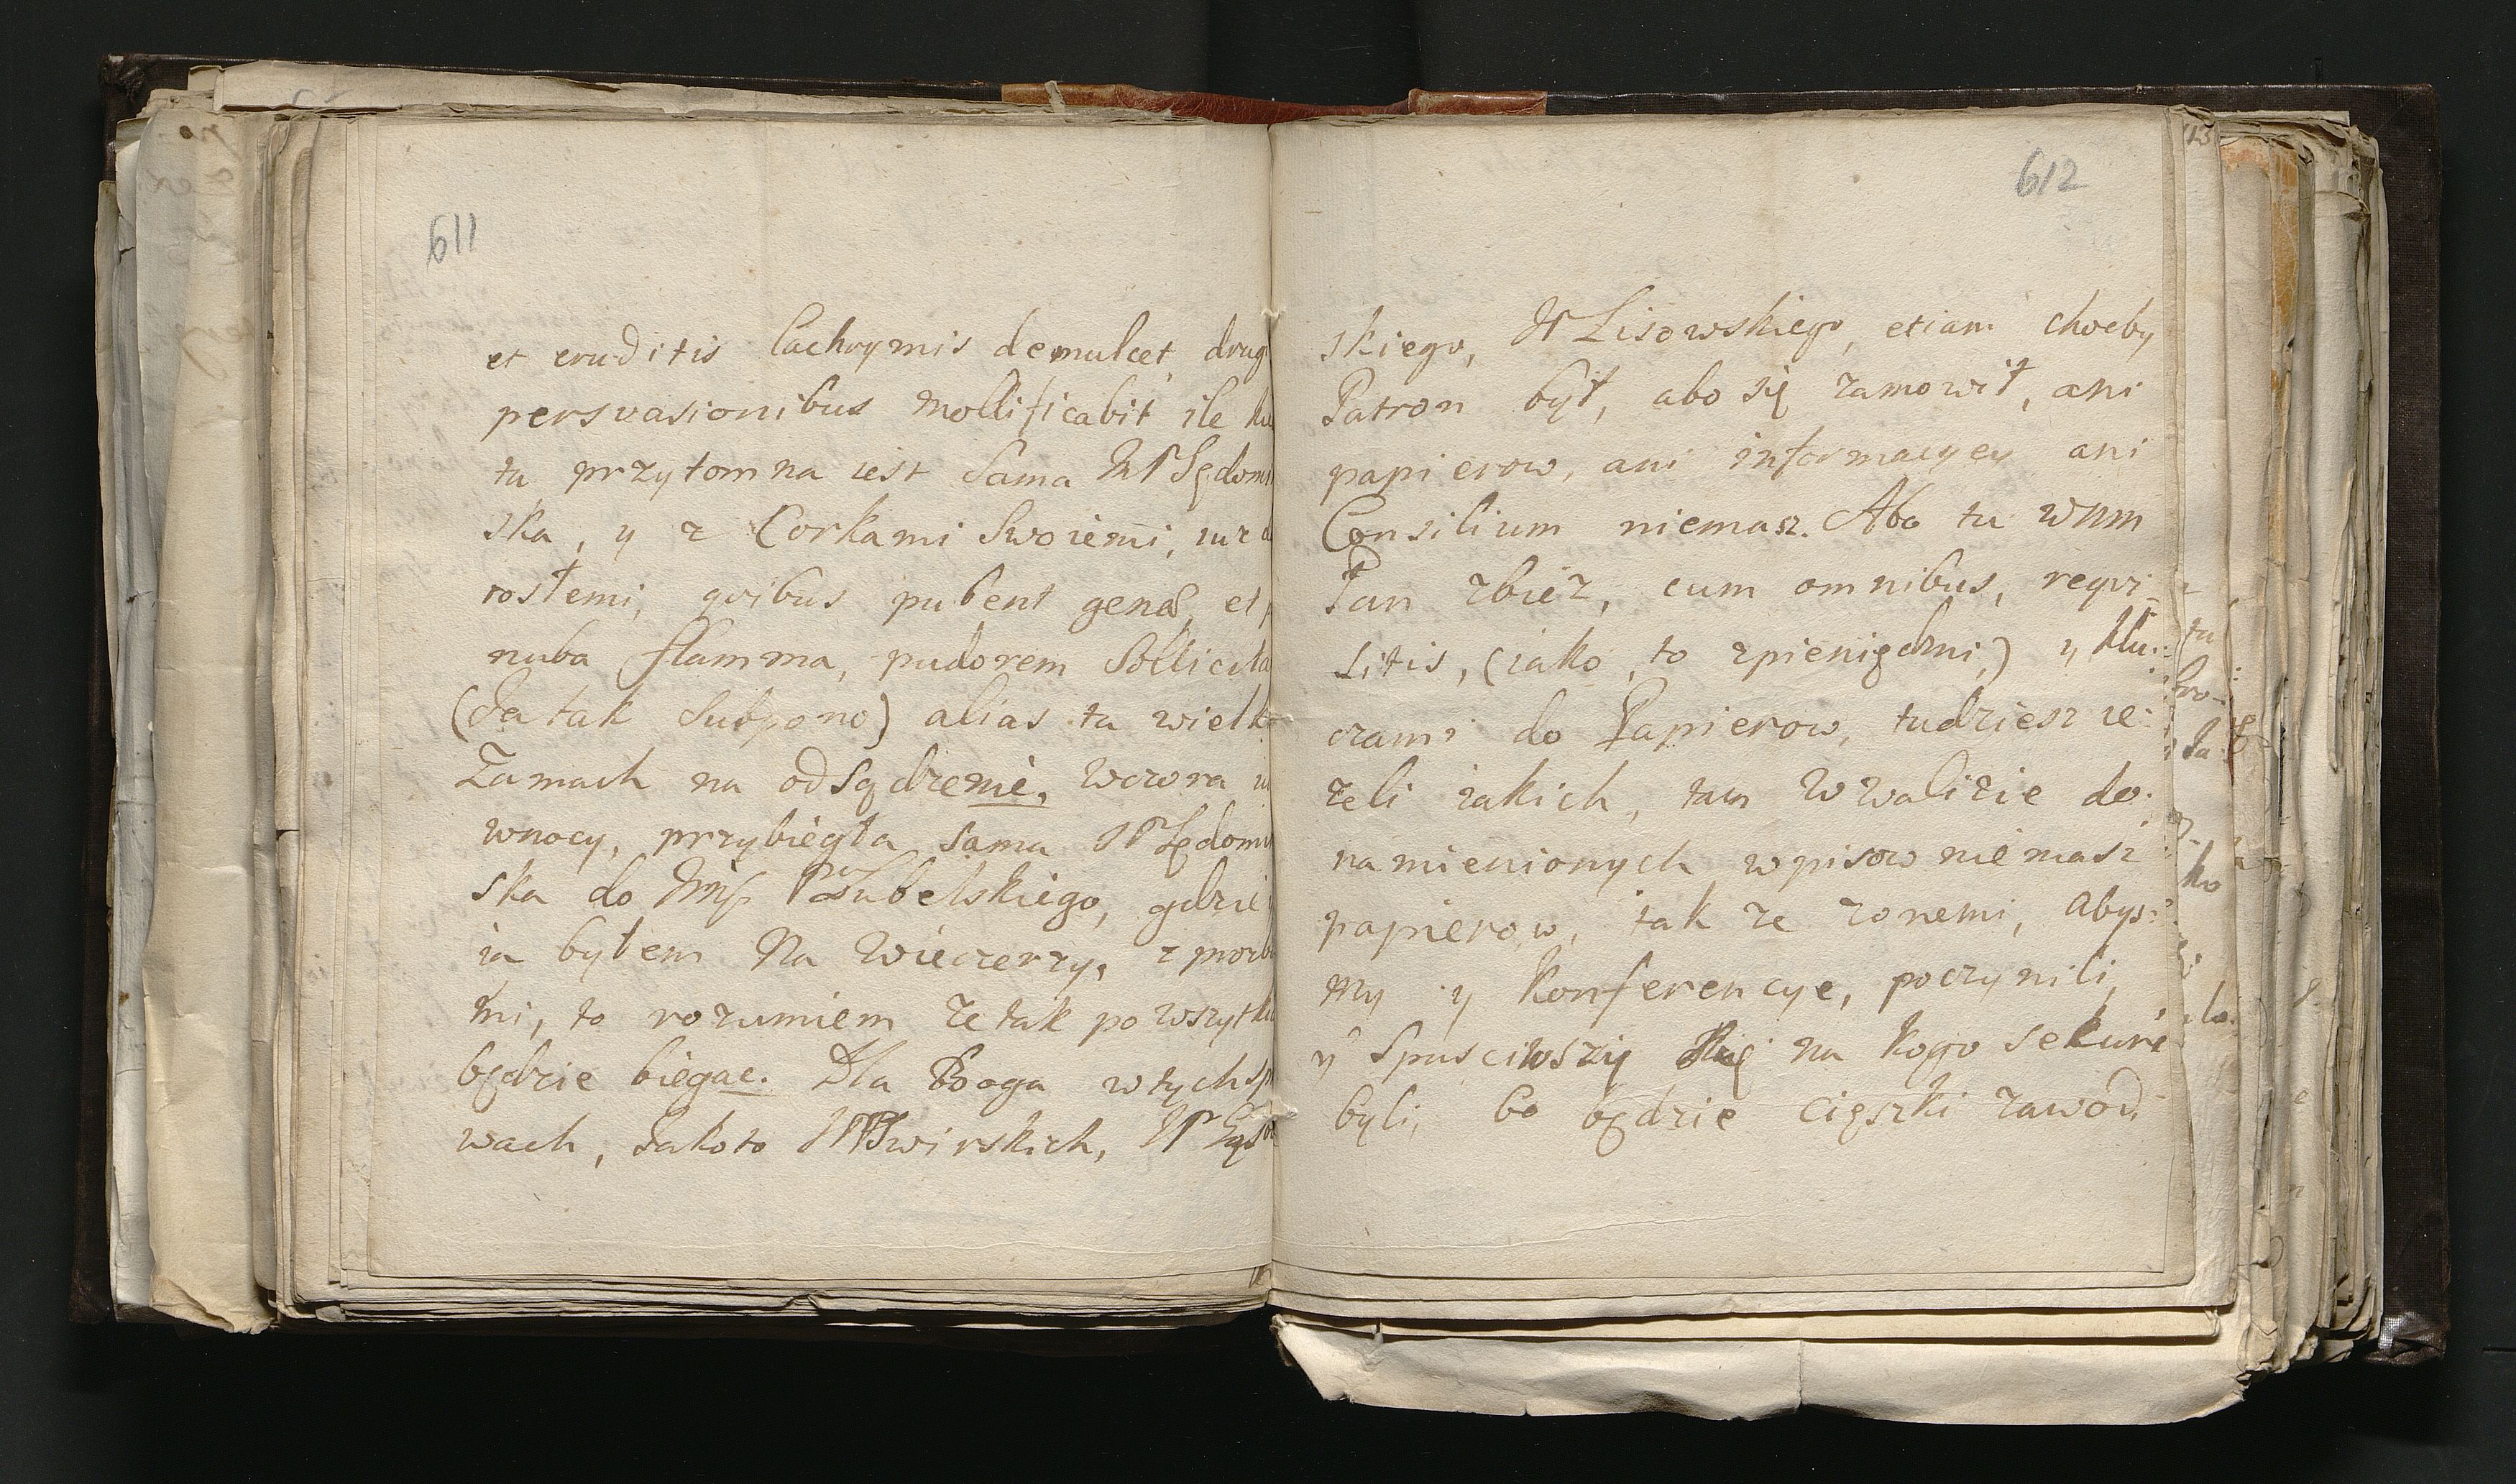 611
et eruditis lachrymis demulcet, drug
persvasionibus mollificabit ile
tu przytomna iest sama
ska, y z Corkami swoiemi, iuz
rostemi, qvibus pubent genæ, et
nuba flamma, pudorem
(Ja tak subpono) alias tu wielk
Zamach na odsądzenie, wczora
wnocy, przybiegła sama
ska do Lubelskiego, gdzie
ia byłem na wieczerzy, z
mi, to rozumiem ze tak po wszytki
będzie biegac. Dla Booga wtych
wach, Jakoto Swirskich,
612
skiego, JP Lisowskiego, etiam choeby
Patron był, abo się zamowił, ani
papierow, ani informacyey ani
Consilium niemasz. Abo tu wnm
Pan zbież, cum omnibus, reqvi-
sitis, (iako to zpieniędzmi) y klu:
czami do Papierow, tudziesz ie:
zeli iakich, tam w walizie do:
namienionych wpisow niemasz
papierow, tak ze zonemi, abys:
my y konferencye, poczynili,
y spusciwszy się na kogo sekure
byli, bo będzie cięszki zawod.